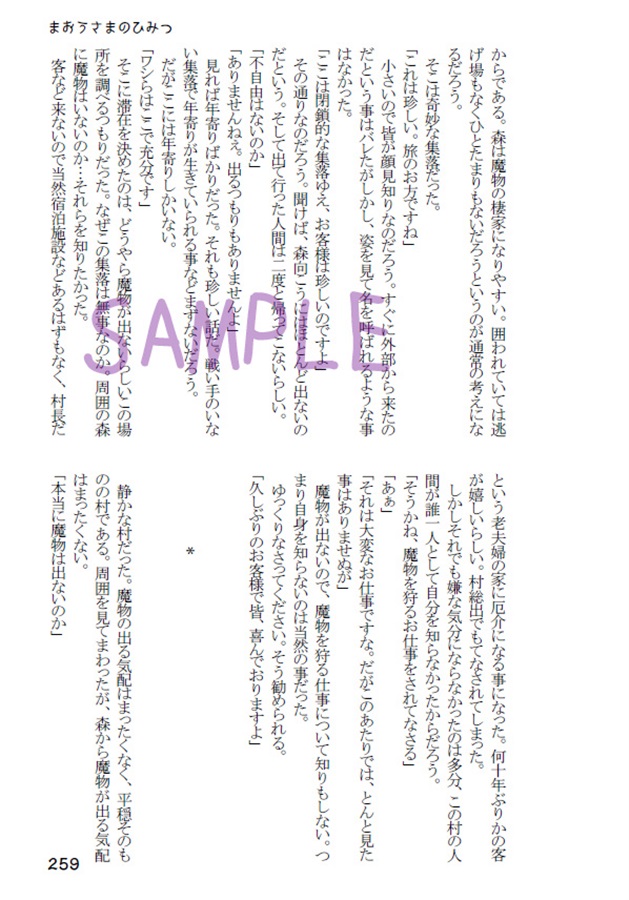 まおうさまのひみつ
からである。森は魔物の棲家になりやすい。囲われていては逃
げ場もなくひとたまりもないだろうというのが通常の考えにな
るだろう。
　そこは奇妙な集落だった。
「これは珍しい。旅のお方ですね」
　小さいので皆が顔見知りなのだろう。すぐに外部から来たの
だという事はバレたがしかし、姿を見て名を呼ばれるような事
はなかった。
「ここは閉鎖的な集落ゆえ、お客様は珍しいのですよ」
　その通りなのだろう。聞けば、森向こうにはほとんど出ないの
だという。そして出て行った人間は二度と帰ってこないらしい。
「不自由はないのか」
「ありませんねぇ。出るつもりもありませんよ」
　見れば年寄りばかりだった。それも珍しい話だ。戦い手のいな
い集落で年寄りが生きていられる事などまずないだろう。
　だがここには年寄りしかいない。
「ワシらはここで充分です」
　そこに滞在を決めたのは、どうやら魔物が出ないらしいこの場
所を調べるつもりだった。なぜこの集落は無事なのか。周囲の森
に魔物はいないのか…それらを知りたかった。
　客など来ないので当然宿泊施設などあるはずもなく、村長だ
という老夫婦の家に厄介になる事になった。何十年ぶりかの客
が嬉しいらしい。村総出でもてなされてしまった。
　しかしそれでも嫌な気分にならなかったのは多分、この村の人
間が誰一人として自分を知らなかったからだろう。
「そうかね、魔物を狩るお仕事をされてなさる」
「あぁ」
「それは大変なお仕事ですな。だがこのあたりでは、とんと見た
事はありませぬが」
　魔物が出ないので、魔物を狩る仕事について知りもしない。つ
まり自身を知らないのは当然の事だった。
　ゆっくりなさってください。そう勧められる。
「久しぶりのお客様で皆、喜んでおりますよ」
＊
　静かな村だった。魔物の出る気配はまったくなく、平穏そのも
のの村である。周囲を見てまわったが、森から魔物が出る気配
はまったくない。
「本当に魔物は出ないのか」
259
SAMPLE